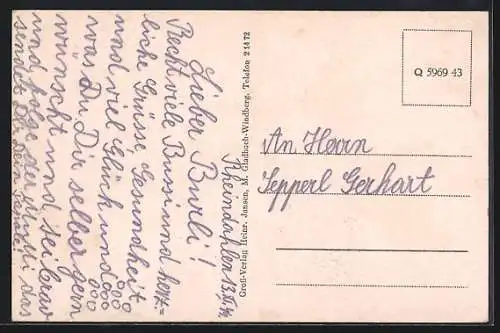 Rheindahlen 13.III.41.
Lieber Burli!
Recht viele Bussi und herz=
liche Grüsse, Gesundheit
und viel Glück und
was Du Dir selber gern
wünscht und sei brav
und folge der Mutti das
sendet Dir Dein
Groß-Verlag Heinr. Jansen, M. Gladbach-Windberg. Telefon 2 14 72
Q 5969 43
An Herrn
Sepperl Gerhart